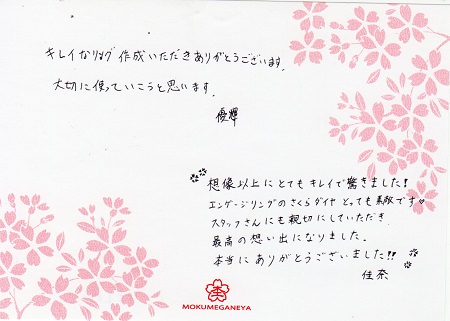 キレイなリング作成いただきありがとうございます。
大切に使っていこうと思います。
優輝
想像以上にとてもキレイで驚きました!
エンゲージリングのさくらダイヤとっても素敵です♡
スタッフさんにも親切にしていただき
最高の想い出になりました。
本当にありがとうございました!!
佳奈
MOKUMEGANEYA